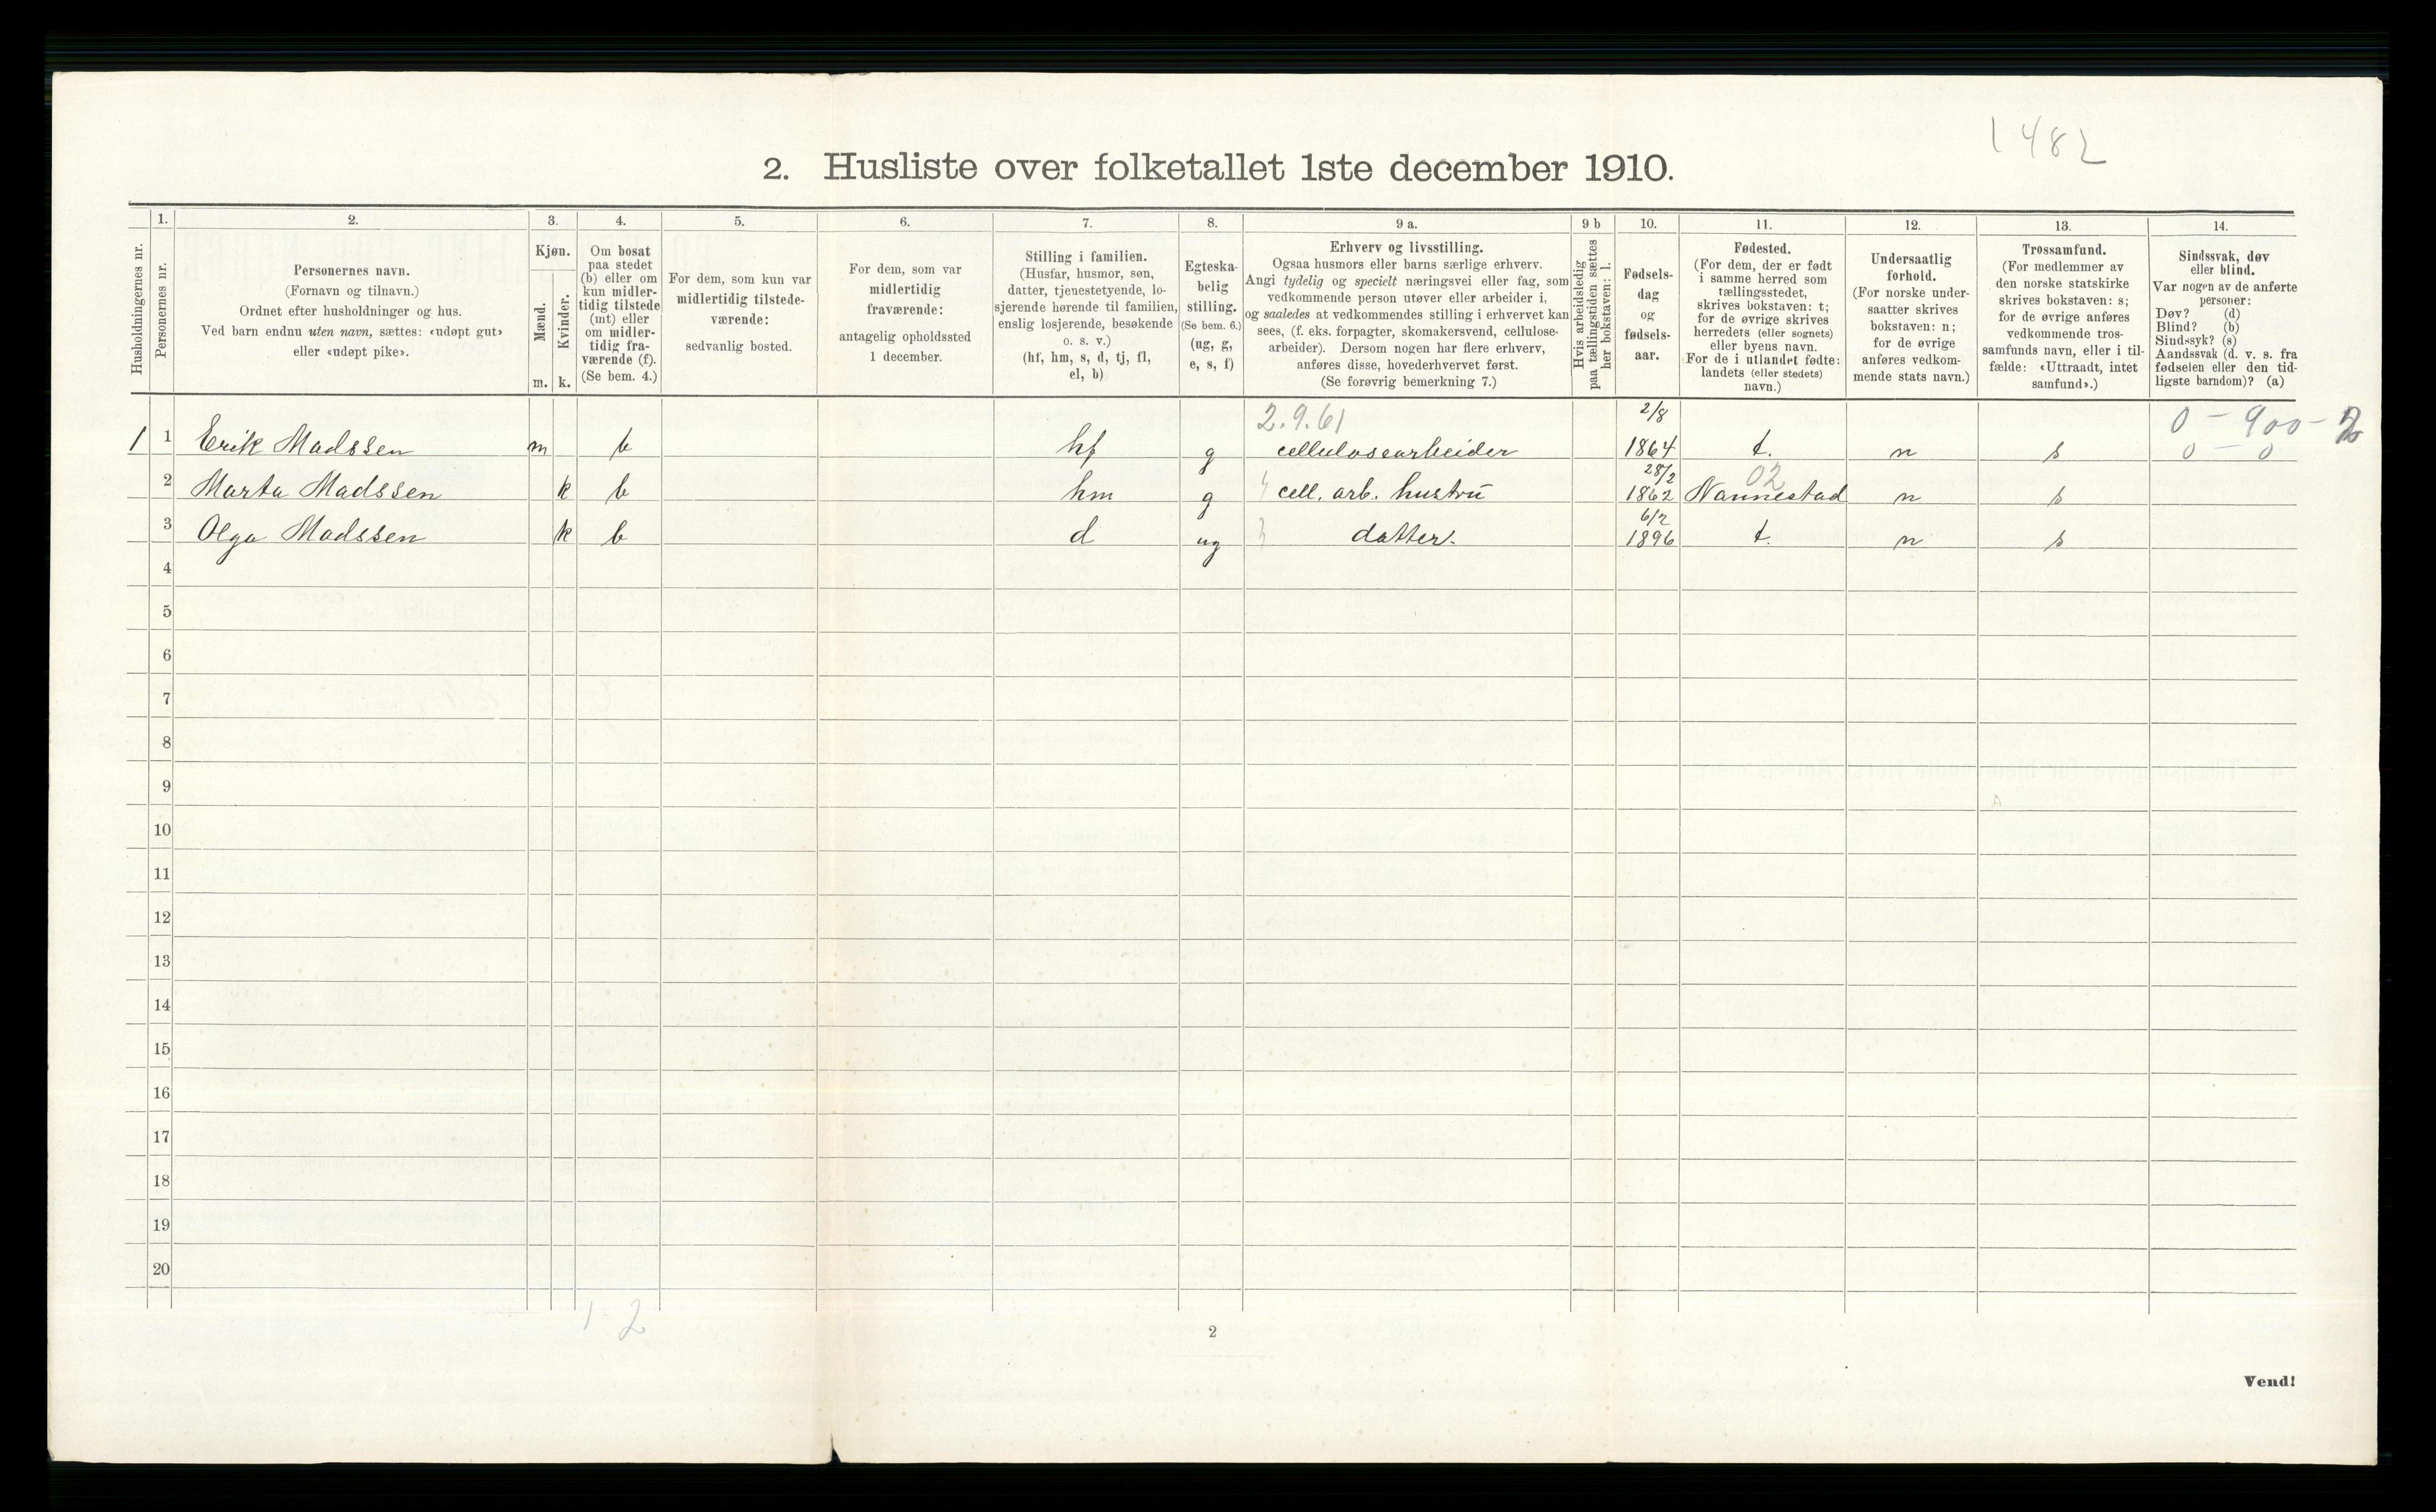 1482
2. Husliste over folketallet 1ste december 1910.
Husholdningernes nr.
1.
Personernes nr.
2.
Personernes navn.
(Fornavn og tilnavn.)
Ordnet efter husholdninger og hus.
Ved barn endnu uten navn, sættes: «udøpt gut»
eller «udøpt pike».
3.
Kjøn.
Mænd.
m.
Kvinder.
k.
4.
Om bosat
paa stedet
(b) eller om
kun midler-
tidig tilstede
(mt) eller
om midler-
tidig fra-
værende (f).
(Se bem. 4.)
5.
For dem, som kun var
midlertidig tilstede-
værende:
sedvanlig bosted.
6.
For dem, som var
midlertidig
fraværende:
antagelig opholdssted
1 december.
7.
Stilling i familien.
(Husfar, husmor, søn,
datter, tjenestetyende, lo-
sjerende hørende til familien,
enslig losjerende, besøkende
o. s. v.)
(hf, hm, s, d, tj, fl,
el, b)
8.
Egteska-
belig
stilling.
(Se bem. 6.)
(ug, g,
e, s, f)
9 a.
Erhverv og livsstilling.
Ogsaa husmors eller barns særlige erhverv.
Angi tydelig og specielt næringsvei eller fag, som
vedkommende person utøver eller arbeider i,
og saaledes at vedkommendes stilling i erhvervet kan
sees, (f. eks. forpagter, skomakersvend, cellulose-
arbeider). Dersom nogen har flere erhverv,
anføres disse, hovederhvervet først.
(Se forøvrig bemerkning 7.)
9 b
Hvis arbeidsledig
paa tællingstiden sættes
her bokstaven: l.
10.
Fødsels-
dag
og
fødsels-
aar.
11.
Fødested.
(For dem, der er født
i samme herred som
tællingsstedet,
skrives bokstaven: t;
for de øvrige skrives
herredets (eller sognets)
eller byens navn.
For de i utlandet fødte:
landets (eller stedets)
navn.)
12.
Undersaatlig
forhold.
(For norske under-
saatter skrives
bokstaven: n;
for de øvrige
anføres vedkom-
mende stats navn.)
13.
Trossamfund.
(For medlemmer av
den norske statskirke
skrives bokstaven: s;
for de øvrige anføres
vedkommende tros-
samfunds navn, eller i til-
fælde: «Uttraadt, intet
samfund».)
14.
Sindssvak, døv
eller blind.
Var nogen av de anførte
personer:
Døv? (d)
Blind? (b)
Sindssyk? (s)
Aandssvak (d. v. s. fra
fødselen eller den tid-
ligste barndom)? (a)
2.9.61 2/8 0 - 900 - 2
1 1 Erik Madssen m b hf g cellulosearbeider 1864 t. n s 0 - 0
28/2 02
2 Marta Madssen k b hm g cell. arb. hustru 1862 Nannestad n s
6/2
3 Olga Madssen k b d ug datter. 1896 t. n s
4
5
6
7
8
9
10
11
12
13
14
15
16
17
18
19
20
1 - 2
2
Vend!